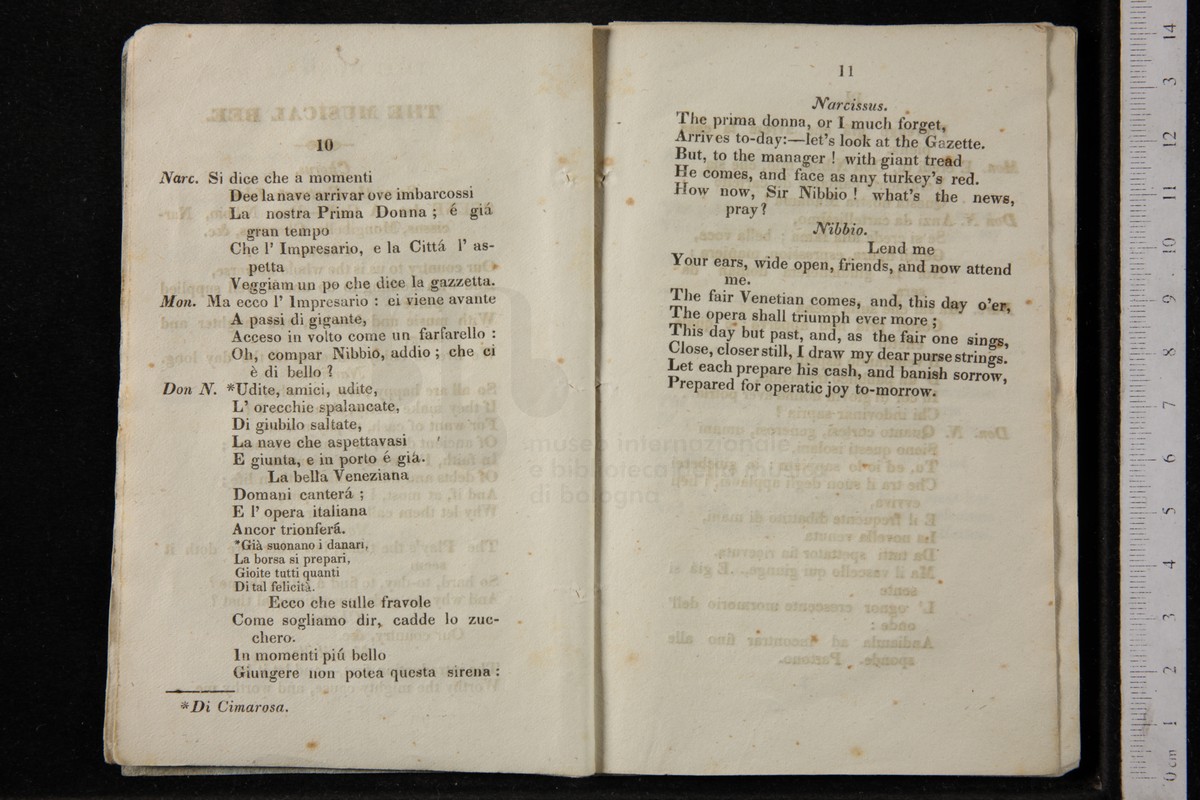 10
Narc. Si dice che a momenti
Dee la nave arrivar ove imbarcossi
La nostra Prima Donna ; é giá
gran tempo
Che l' Impresario, e la Cittá l' as-
petta
Veggiam un po che dice la gazzetta.
Mon. Ma ecco l' Impresario : ei viene avante
A passi di gigante,
Acceso in volto come un farfarello :
Oh, compar Nibbio, addio ; che ci
è di bello ?
Don N. *Udite, amici, udite,
L' orecchie spalancate,
Di giubilo saltate,
La nave che aspettavasi
E giunta, e in porto é giá.
La bella Veneziana
Domani canterá ;
E l' opera italiana
Ancor trionferá.
*Già suonano i danari,
La borsa si prepari,
Gioite tutti quanti
Di tal felicità.
Ecco che sulle fravole
Come sogliamo dir, cadde lo zuc-
chero.
In momenti piú bello
Giungere non potea questa sirena :
*Di Cimarosa.
11
Narcissus.
The prima donna, or I much forget,
Arrives to-day:—let's look at the Gazette.
But, to the manager ! with giant tread
He comes, and face as any turkey's red.
How now, Sir Nibbio ! what's the news,
pray ?
Nibbio.
Lend me
Your ears, wide open, friends, and now attend
me.
The fair Venetian comes, and, this day o'er,
The opera shall triumph ever more ;
This day but past, and, as the fair one sings,
Close, closer still, I draw my dear purse strings.
Let each prepare his cash, and banish sorrow,
Prepared for operatic joy to-morrow.
museo internazionale
e biblioteca della musica
di bologna
0 cm 1 2 3 4 5 6 7 8 9 10 11 12 3 14